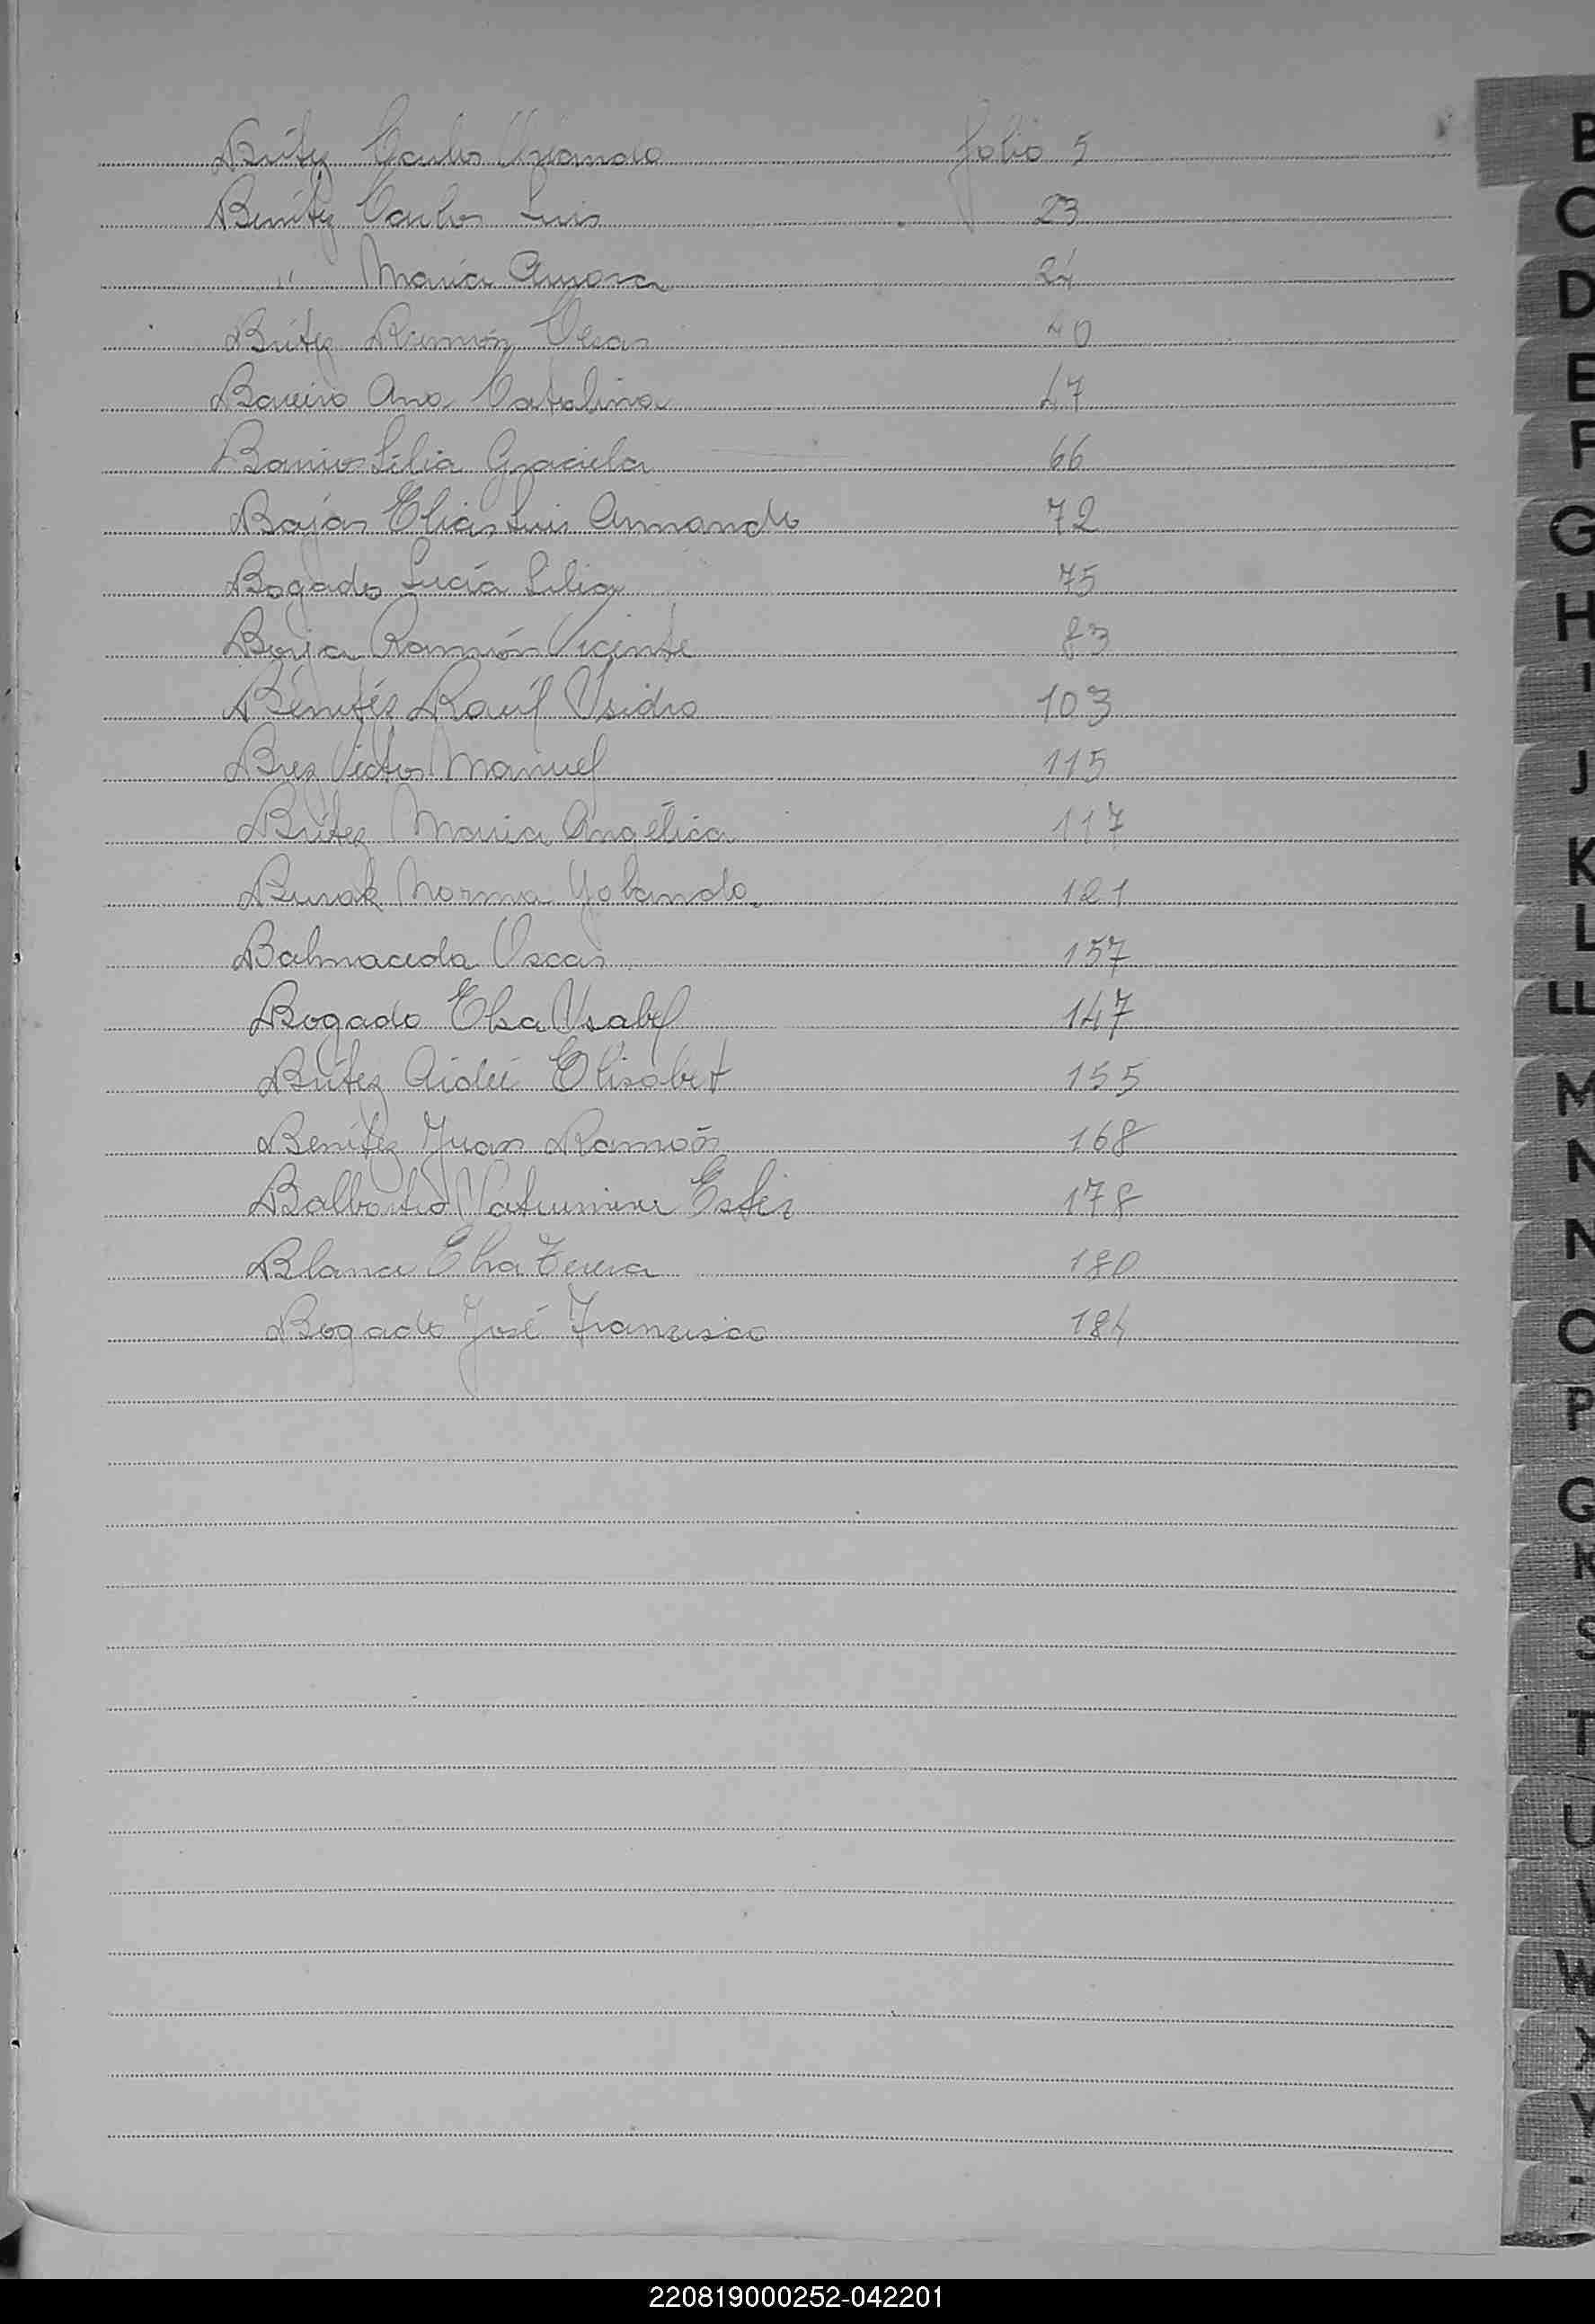 Brítez Carlos Orlando folio 5
Benítez Carlos Luis 23
" María Amora 24
Brítez Ramón Oscar 40
Bareiro Ana Catalina 47
Barrios Lilia Graciela 66
Bajas Elías Luis Armando 72
Bogado Lucía Lilia 75
Borja Ramón Vicente 83
Benítez Raúl Ysidro 103
Brez Victor Manuel 115
Brítez María Angélica 117
Burak Norma Yolanda 121
Balmaceda Oscar 157
Bogado Elsa Ysabel 147
Brítez Aidée Elisabet 155
Benítez Juan Ramón 168
Ester 178
Blanca Elsa Teresa 180
Bogado José Francisco 184
B
C
D
E
F
G
H
I
J
K
L
LL
M
N
N
O
P
Q
R
S
T
U
W
X
Y
220819000252-042201